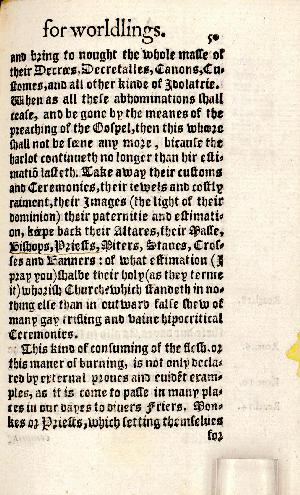 for worldlings. 50
and bring to nought the whole masse of
their Decrees, Decretalles, Canons, Cu-
stomes, and all other kinde of Idolatrie.
When as all these abhominations shall
cease, and be gone by the meanes of the
preaching of the Gospel, then this whore
shall not be seene any more, bicause the
harlot continueth no longer than hir esti-
matiō lasteth. Take away their customs
and Ceremonies, their iewels and costly
raiment, their Images (the light of their
dominion) their paternitie and estimati-
on, keepe back their Altares, their Masse,
Bishops, Priests, Miters, Staves, Cros-
ses and Banners: of what estimation (I
pray you) shalbe their holy (as they terme
it) whorish Church which standeth in no-
thing else than in outward false shew of
many gay trifling and vaine hipocritical
Ceremonies.
This kind of consuming of the flesh, or
this maner of burning, is not only decla-
red by external proues and euidēt exam-
ples, as it is come to passe in many pla-
ces in our dayes to diuers Friers, Mon-
kes or Priests, which setting themselues
for